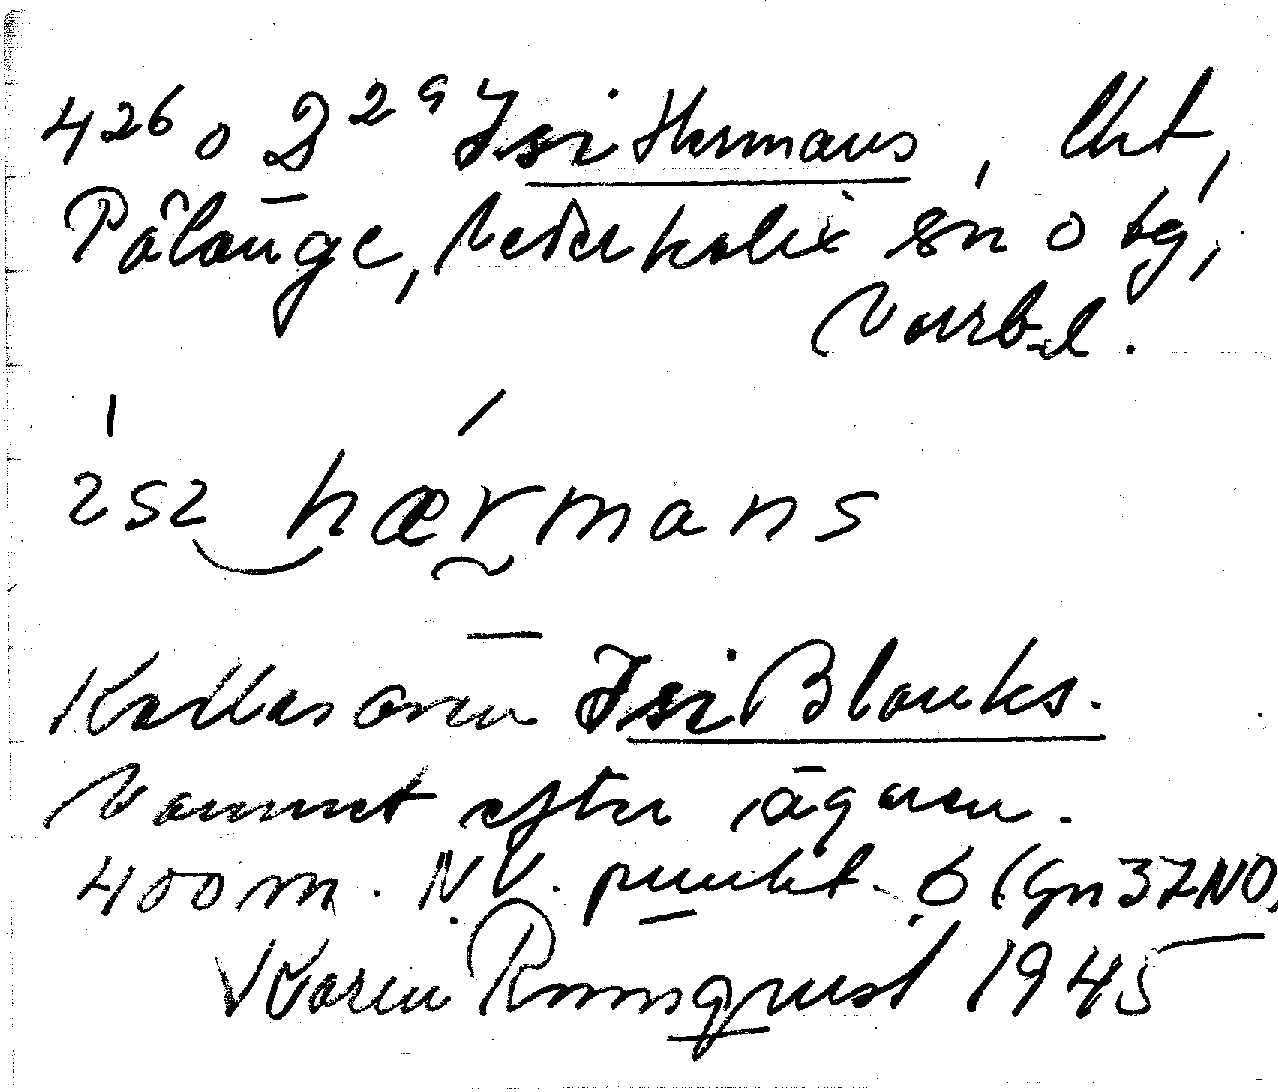 426 o D 29 Isi Hermans, lht,
Pålänge, Nederkalix sn o tg,
Norrb. l.
ɪsɪ hærmans
Kallas även Isi Blanks.
Namnet efter ägaren.
400 m. NV. punkt 6 (Gn 37 NO)
Karin Rönnqvist 1945